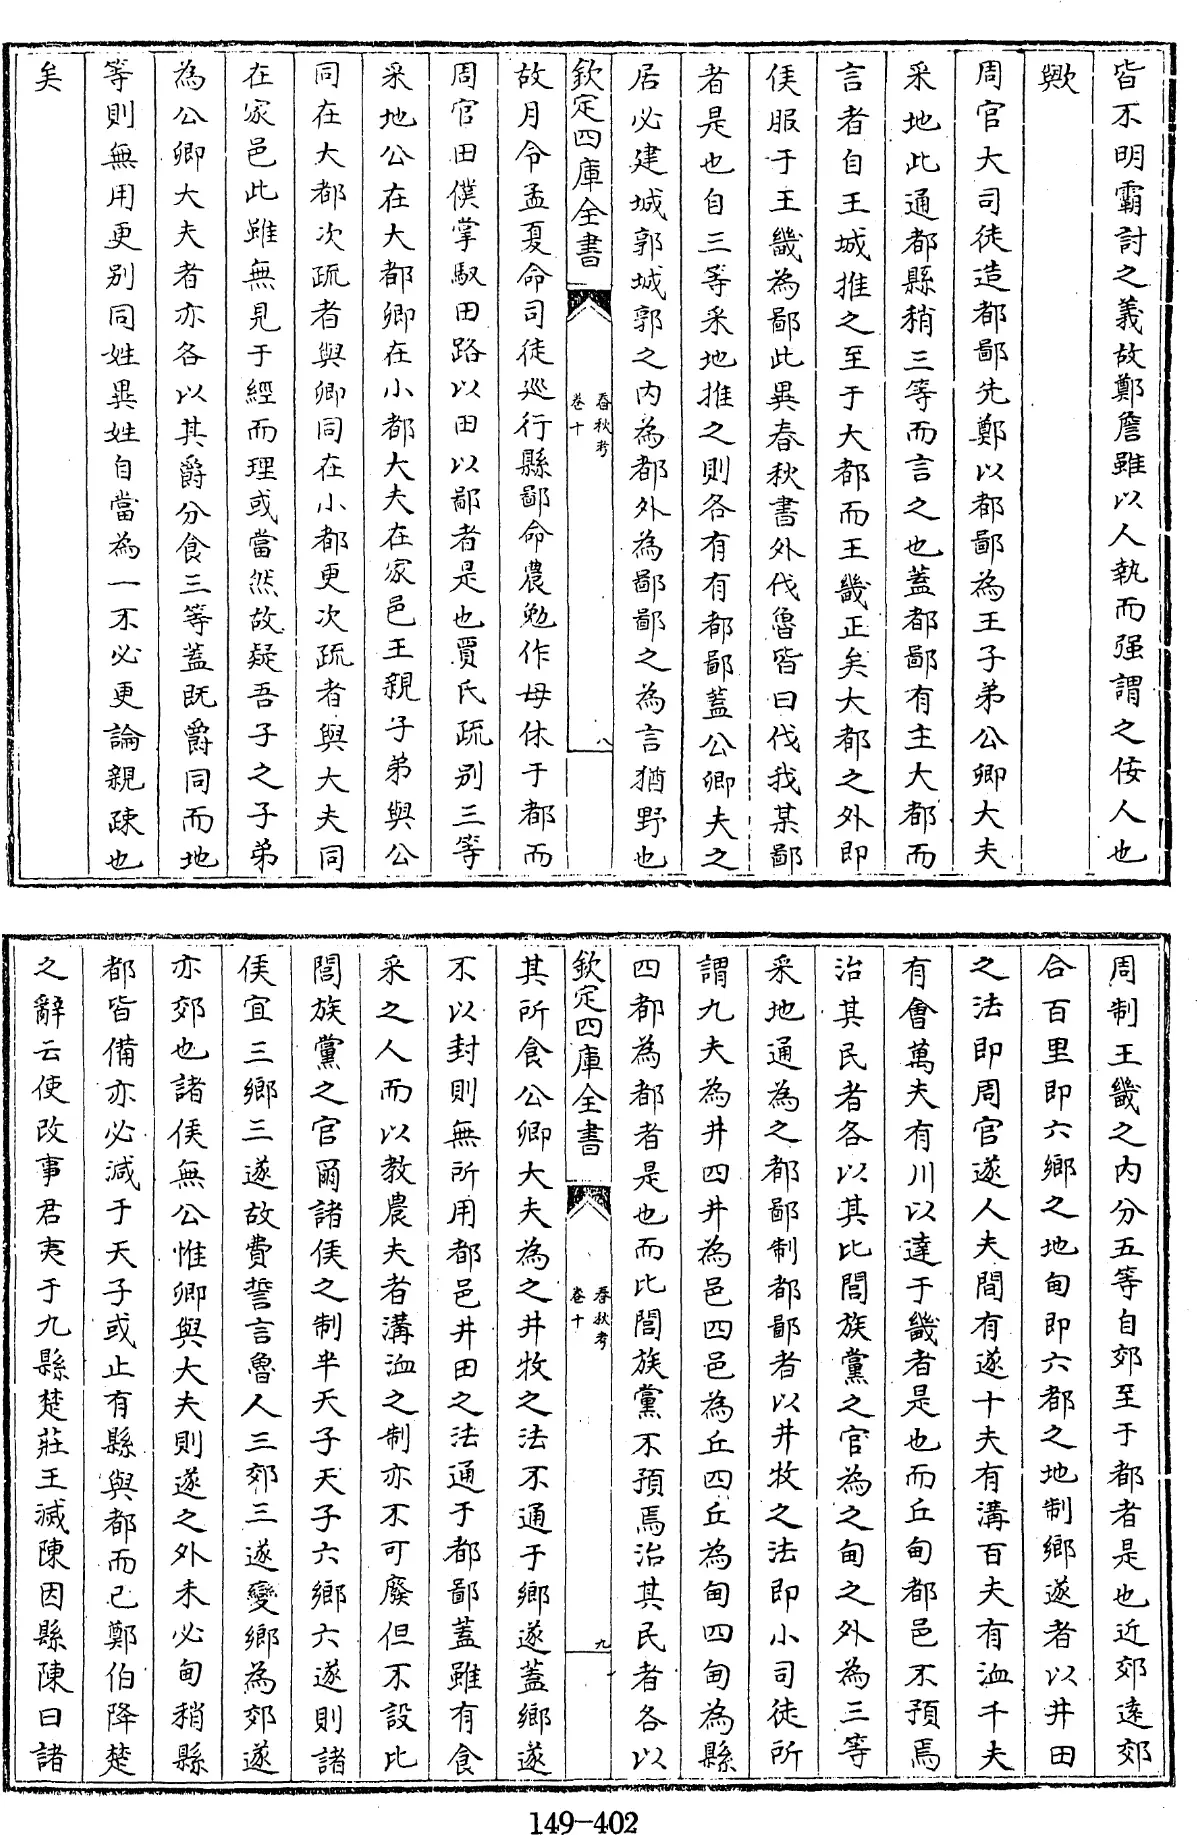 皆不明霸討之義故鄭詹雖以人執而强謂之佞人也
歟
周官大司徒造都鄙先鄭以都鄙為王子弟公卿大夫
采地此通都縣稍三等而言之也蓋都鄙有主大都而
言者自王城推之至于大都而王畿正矣大都之外即
侯服于王畿為鄙此異春秋書外伐魯皆曰伐我某鄙
者是也自三等采地推之則各有有都鄙蓋公卿夫之
居必建城郭城郭之内為都外為鄙鄙之為言猶野也
欽定四庫全書
春秋考
卷十
八
故月令孟夏命司徒巡行縣鄙命農勉作毋休于都而
周官田僕掌馭田路以田以鄙者是也賈氏疏别三等
采地公在大都卿在小都大夫在家邑王親子弟與公
同在大都次疏者與卿同在小都更次疏者與大夫同
在家邑此雖無見于經而理或當然故疑吾子之子弟
為公卿大夫者亦各以其爵分食三等蓋既爵同而地
等則無用更别同姓異姓自當為一不必更論親疎也
矣
周制王畿之内分五等自郊至于都者是也近郊逺郊
合百里即六鄉之地甸即六都之地制鄉遂者以井田
之法即周官遂人夫間有遂十夫有溝百夫有洫千夫
有㑹萬夫有川以達于畿者是也而丘甸都邑不預焉
治其民者各以其比閭族黨之官為之甸之外為三等
采地通為之都鄙制都鄙者以井牧之法即小司徒所
謂九夫為井四井為邑四邑為丘四丘為甸四甸為縣
四都為都者是也而比閭族黨不預焉治其民者各以
欽定四庫全書
春秋考
卷十
九
其所食公卿大夫為之井牧之法不通于鄉遂蓋鄉遂
不以封則無所用都邑井田之法通于都鄙蓋雖有食
采之人而以教農夫者溝洫之制亦不可廢但不設比
閭族黨之官爾諸侯之制半天子天子六鄉六遂則諸
侯宜三鄉三遂故費誓言魯人三郊三遂變鄉為郊遂
亦郊也諸侯無公惟卿與大夫則遂之外未必甸稍縣
都皆備亦必減于天子或止有縣與都而已鄭伯降楚
之辭云使改事君夷于九縣楚莊王滅陳因縣陳曰諸
149-402